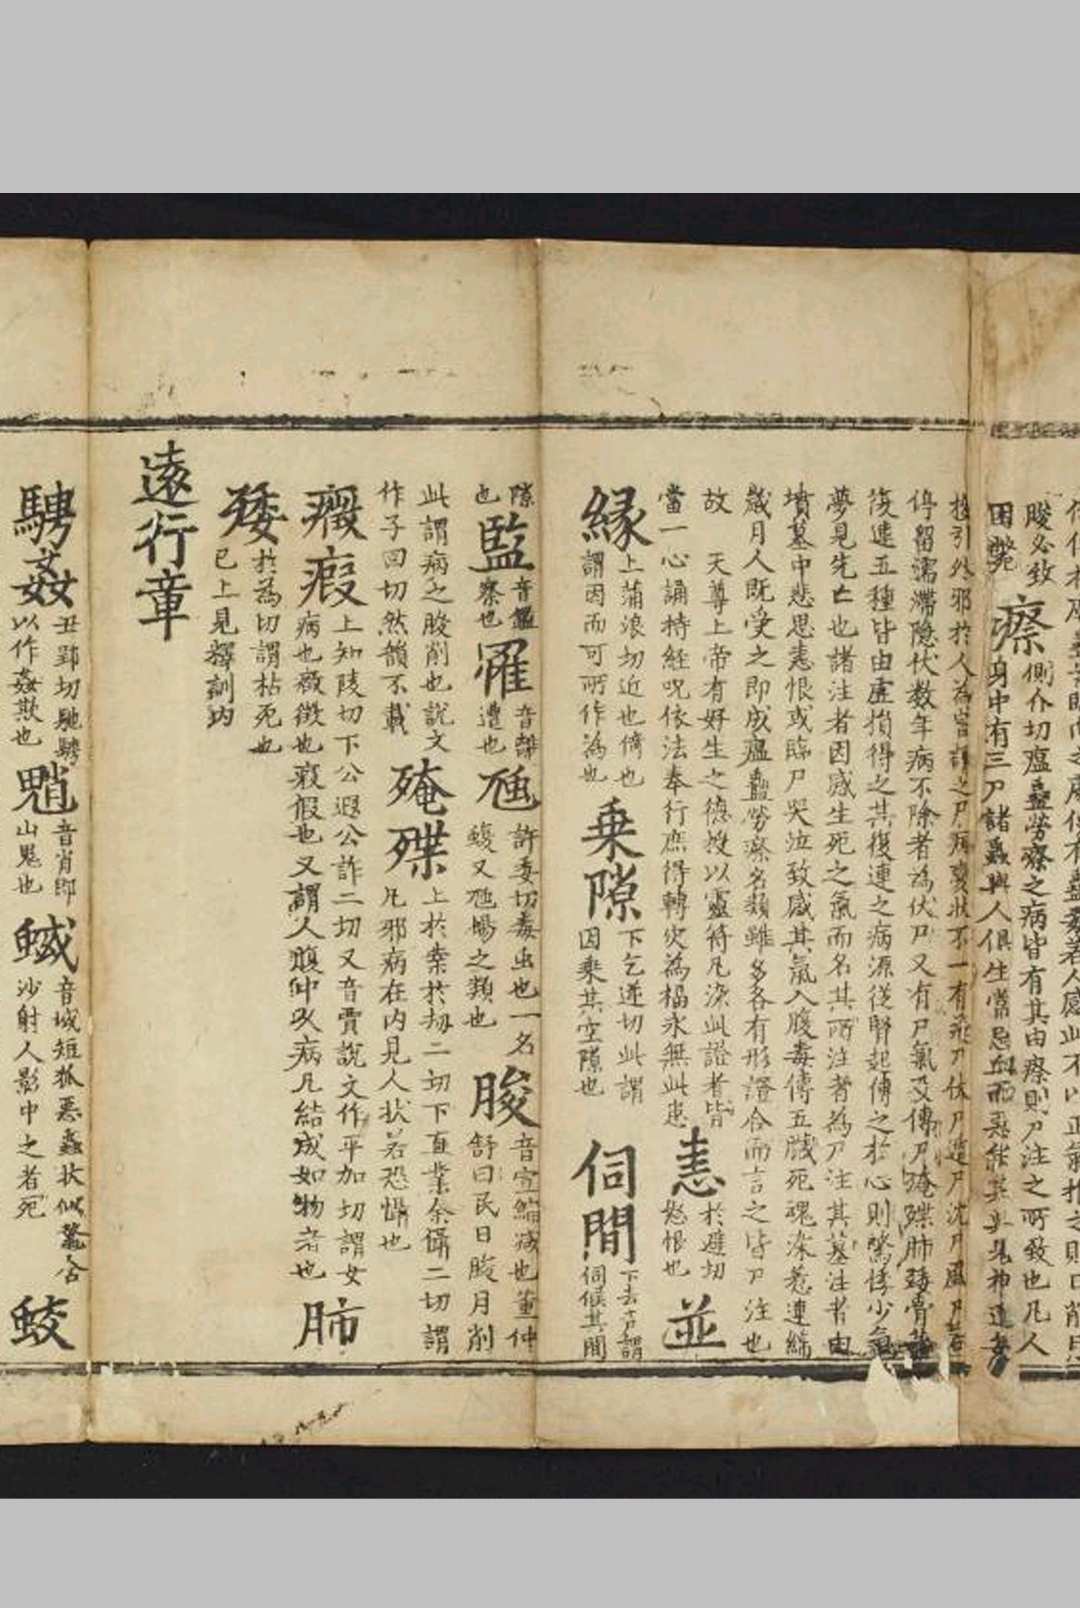 困弊 瘵 側介切瘟蠱勞瘵之病皆有其由瘵則尸注之所發也凡人
身中有三尸諸蟲與人俱生常忌血而惡
接引外邪於人為害謂之尸病變狀不一有飛尸伏尸遁尸沈尸風尸
停留濡滯隐伏数年病不除者為伏尸又有尸氣及傳尸殗殜肺痿骨蒸
復連五種皆由虛損得之其復連之病源從腎起傳之於心則驚悸少氣
夢見先亡也諸注者因感生死之氣而名其所注者為尸注其墓注者由
墳墓中悲思恚恨或臨尸哭泣致感其氣入腹毒傳五臟死魂染惹連緜
歲月人既受之即成瘟蠱勞瘵名類雖多各有形證合而言之皆尸注也
故 天尊上帝有好生之德授以靈符凡染此證者皆
當一心誦持經呪依法奉行庶得轉灾為福永無此患 恚 於避切
怒恨也 並
緣 上蒲浪切近也倚也
謂因而可所作為也 乗隙 下乞逆切此謂
因乗其空隙也 伺間 下去声謂
伺候其間
隙
也 監 音鑑
察也 罹 音離
遭也 虺 許委切毒虫也一名
蝮又虺蜴之類也 朘 音宣縮減也董仲
舒曰民日朘月削
此謂病之朘削也說文
作子回切然韻不載 殗殜 上於業於刼二切下直業余懾二切謂
凡邪病在内見人状若恐懾也
癥瘕 上知陵切下公遐公詐二切又音賈說文作平加切謂女
病也癥徵也瘕假也又謂人腹中久病凡結成如物者也 肺
痿 於為切謂枯死也
已上見釋訓内
遠行章
騁姦 丑郢切馳騁
以作姦欺也 魈 音肖即
山鬼也 蜮 音域短狐惡蟲状似鱉含
沙射人影中之者死 蛟